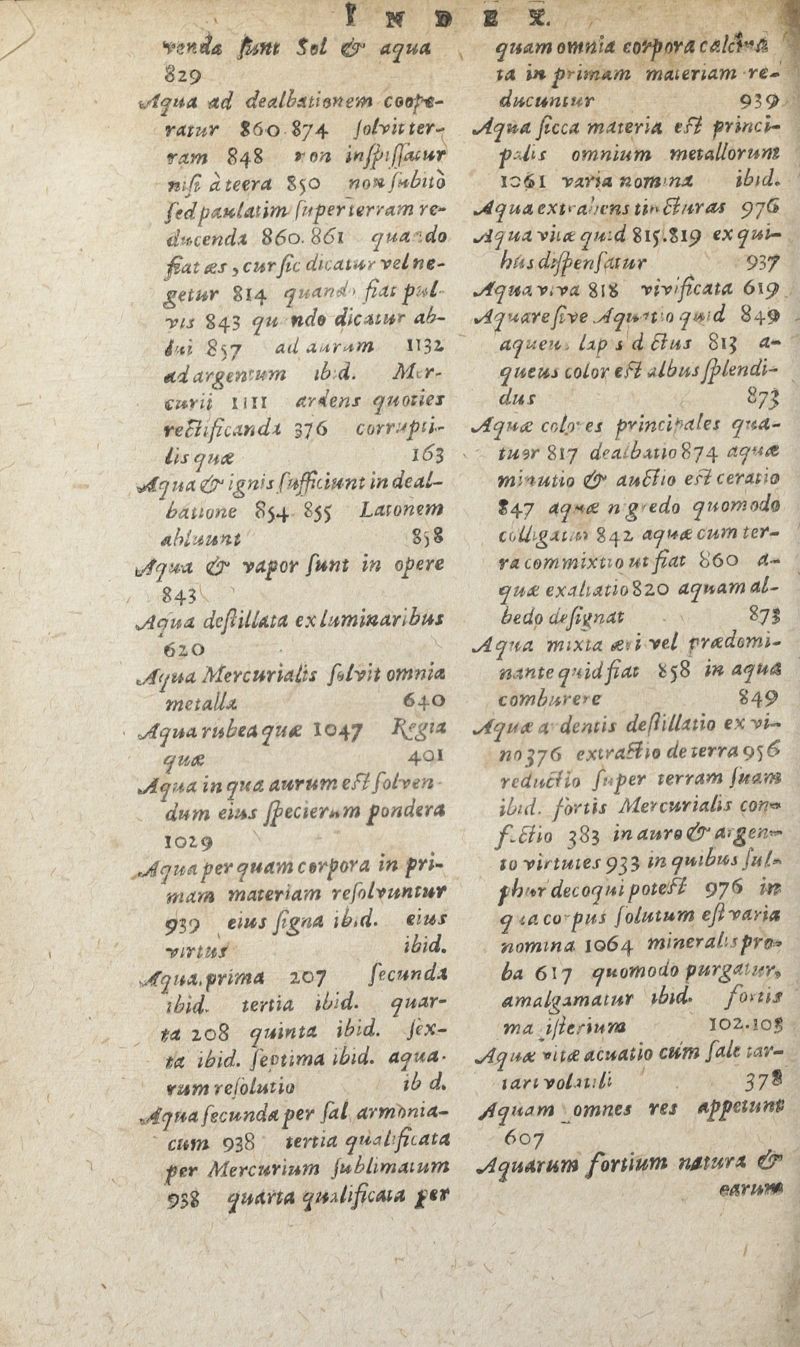 INDEX.
venda sunt Sol & aqua
829
Aqua ad dealbationem coope-
ratur 860.874 solvit ter-
ram 848 non inspissatur
nisi à teera 850 non subitò
sed paulatim super terram re-
ducenda 860.861 quando
fiat æs, cur sic dicatur vel ne-
getur 814 quando fiat pul-
vis 843 quando dicatur ab-
lui 857 ad aurum 1132
ad argentum ibid. Mer-
curii 1111 ardens quoties
rectificanda 376 corrupti-
lis quæ 163
Aqua & ignis sufficiunt in deal-
batione 854 855 Latonem
abluunt 858
Aqua & vapor sunt in opere
843
Aqua destillata ex luminaribus
620
Aqua Mercurialis solvit omnia
metalla 640
Aqua rubea quæ 1047 Regia
quæ 401
Aqua in qua aurum est solven-
dum eius specierum pondera
1029
Aqua per quam corpora in pri-
mam materiam resolvuntur
939 eius signa ibid. eius
virtus ibid.
Aqua prima 207 secunda
ibid. tertia ibid. quar-
ta 208 quinta ibid. sex-
ta ibid. septima ibid. aqua-
rum resolutio ib d.
Aqua secunda per sal armonia-
cum 938 tertia qualificata
per Mercurium sublimatum
938 quarta qualificata per
quam omnia corpora calcina
ta in primam materiam re-
ducuntur 939
Aqua sicca materia est princi-
palis omnium metallorum
1061 varia nomina ibid.
Aqua extrahens tincturas 976
Aqua vitæ quid 815.819 ex qui-
bus dispensatur 937
Aqua viva 818 vivificata 619
Aquare sive Aquatio quid 849
aqueus lapis dictus 813 a-
queus color est albus splendi-
dus 873
Aquæ colores principales qua-
tuor 817 dealbatio 874 aquæ
minutio & auctio est ceratio
847 aquæ nigredo quomodo
colligatur 842 aquæ cum ter-
ra commixtio ut fiat 860 a-
quæ exaltatio 820 aquam al-
bedo designat 873
Aqua mixta æri vel prædomi-
nante quid fiat 858 in aqua
comburere 849
Aquæ ardentis destillatio ex vi-
no 376 extractio de terra 956
reductio super terram suam
ibid. fortis Mercurialis con-
fectio 383 in auro & argen-
to virtutes 933 in quibus sul-
phur decoqui potest 976 in
qua corpus solutum est varia
nomina 1064 mineralis pro-
ba 617 quomodo purgatur,
amalgamatur ibid. fortis
ma isterium 102.103
Aquæ vitæ acuatio cum sale tar-
tari volatili 378
Aquam omnes res appetunt
607
Aquarum fortium natura &
earum